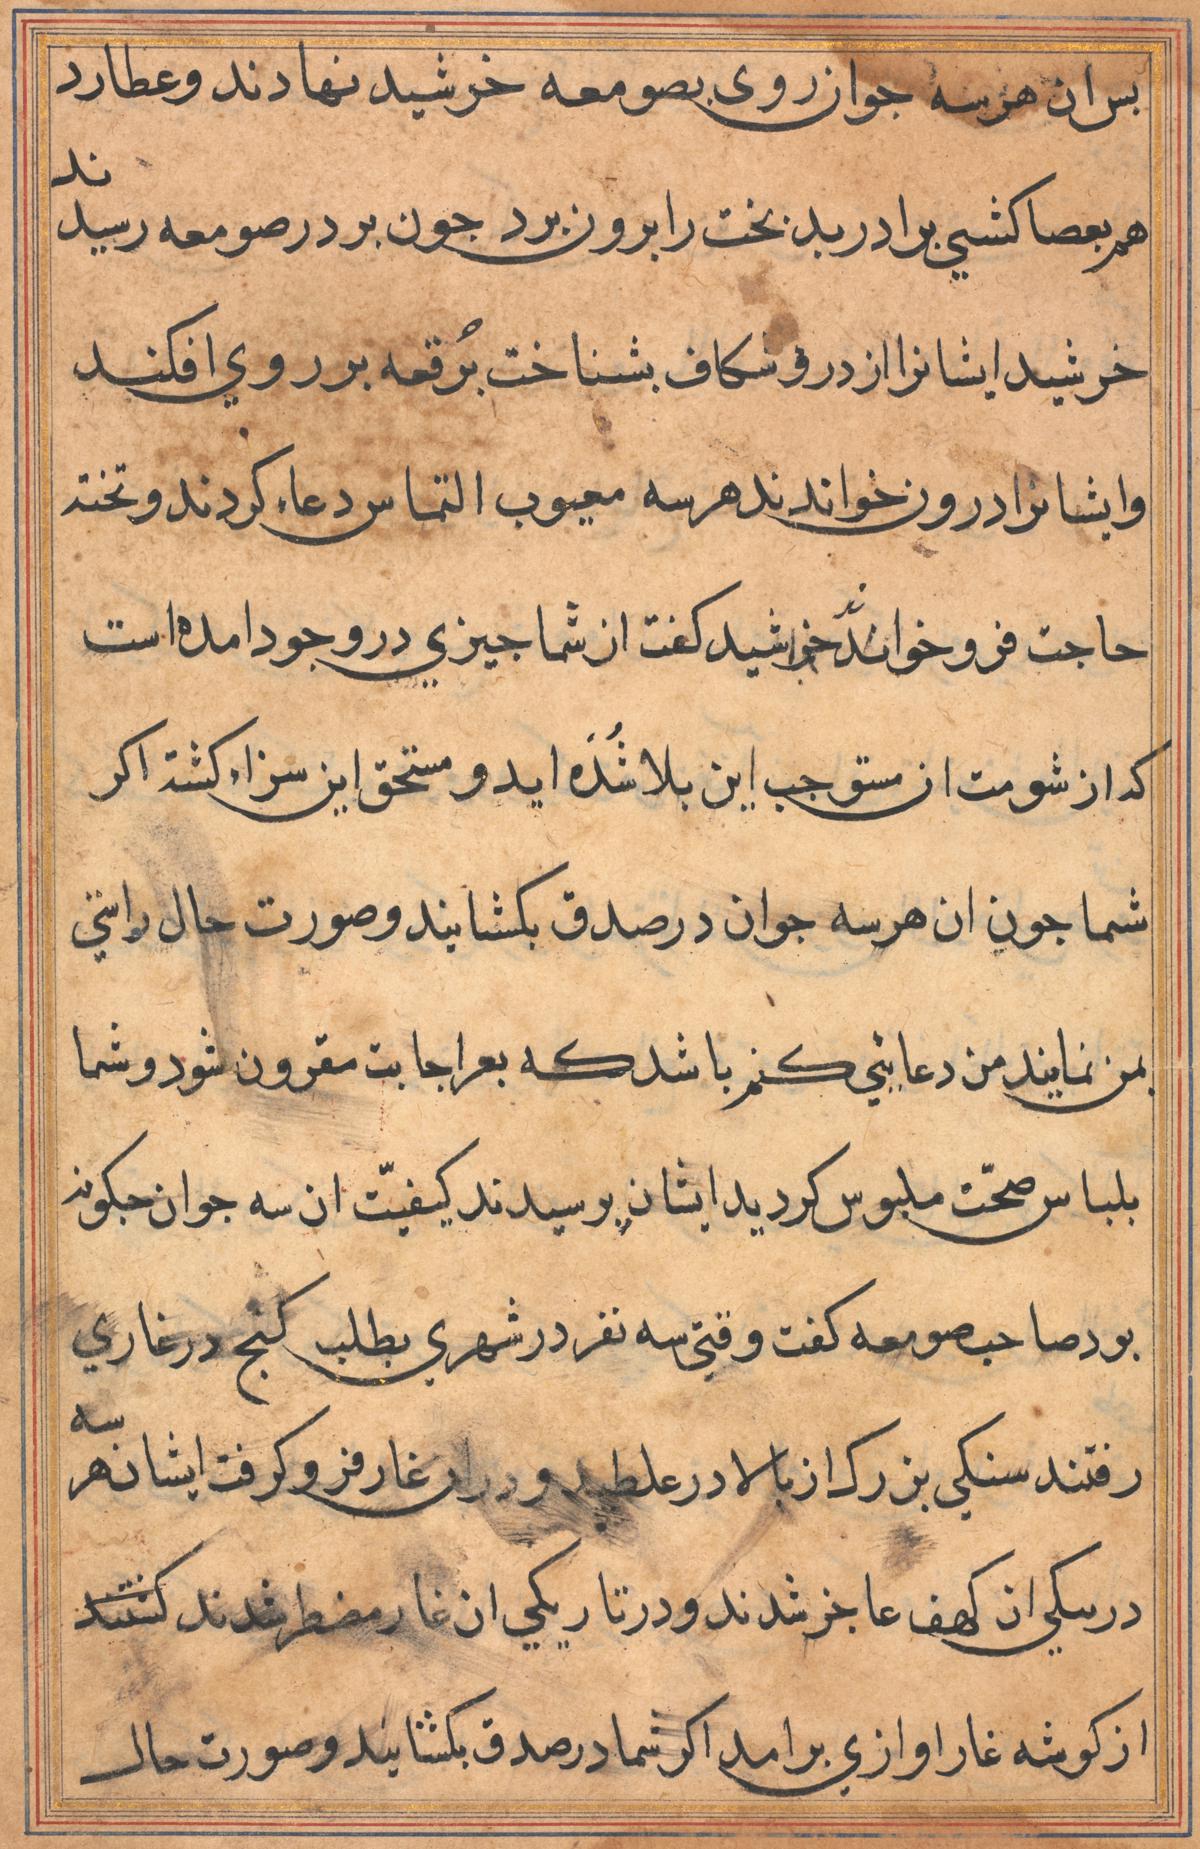 بس ان هر سه جوان روی بصومعه خرشید نهادند و عطارد
هم بعصا کشیی برادر بد بخت را برون برد جون بر در صومعه رسیدند
خرشید ایشانرا از در و شکاف بشناخت بُرقعه بر روی افکند
و ایشانرا درون خواندند هر سه معیوب التماس دعاء کردند و تخته
حاجت فرو خواندند خرشید کفت از شما جیزی در وجود امده است
که از شومت ان مستوجب این بلا شُدَه اید و مستحق این سزاء کشته اکر
شما جون ان هر سه جوان در صدق بکشایند و صورت حال راستی
بمن نمایند من دعایئی کنم باشد که بعز اجابت مقرون شود و شما
بلباس صحّت ملبوس کردید ایشان پرسیدند کیفیّت ان سه جوان جکونه
بود صاحب صومعه کفت وقتی سه نفر در شهری بطلب کنج در غاری
رفتند سنکی بزرک از بالا در غلطید و در ان غار فرو کرفت ایشان هر سه
در سکی ان کهف عاجز شدند و در تاریکی ان غار مضطر شدند کشتند
از کوشه غار اوازی بر امد اکر شما در صدق بکشایند و صورت حال